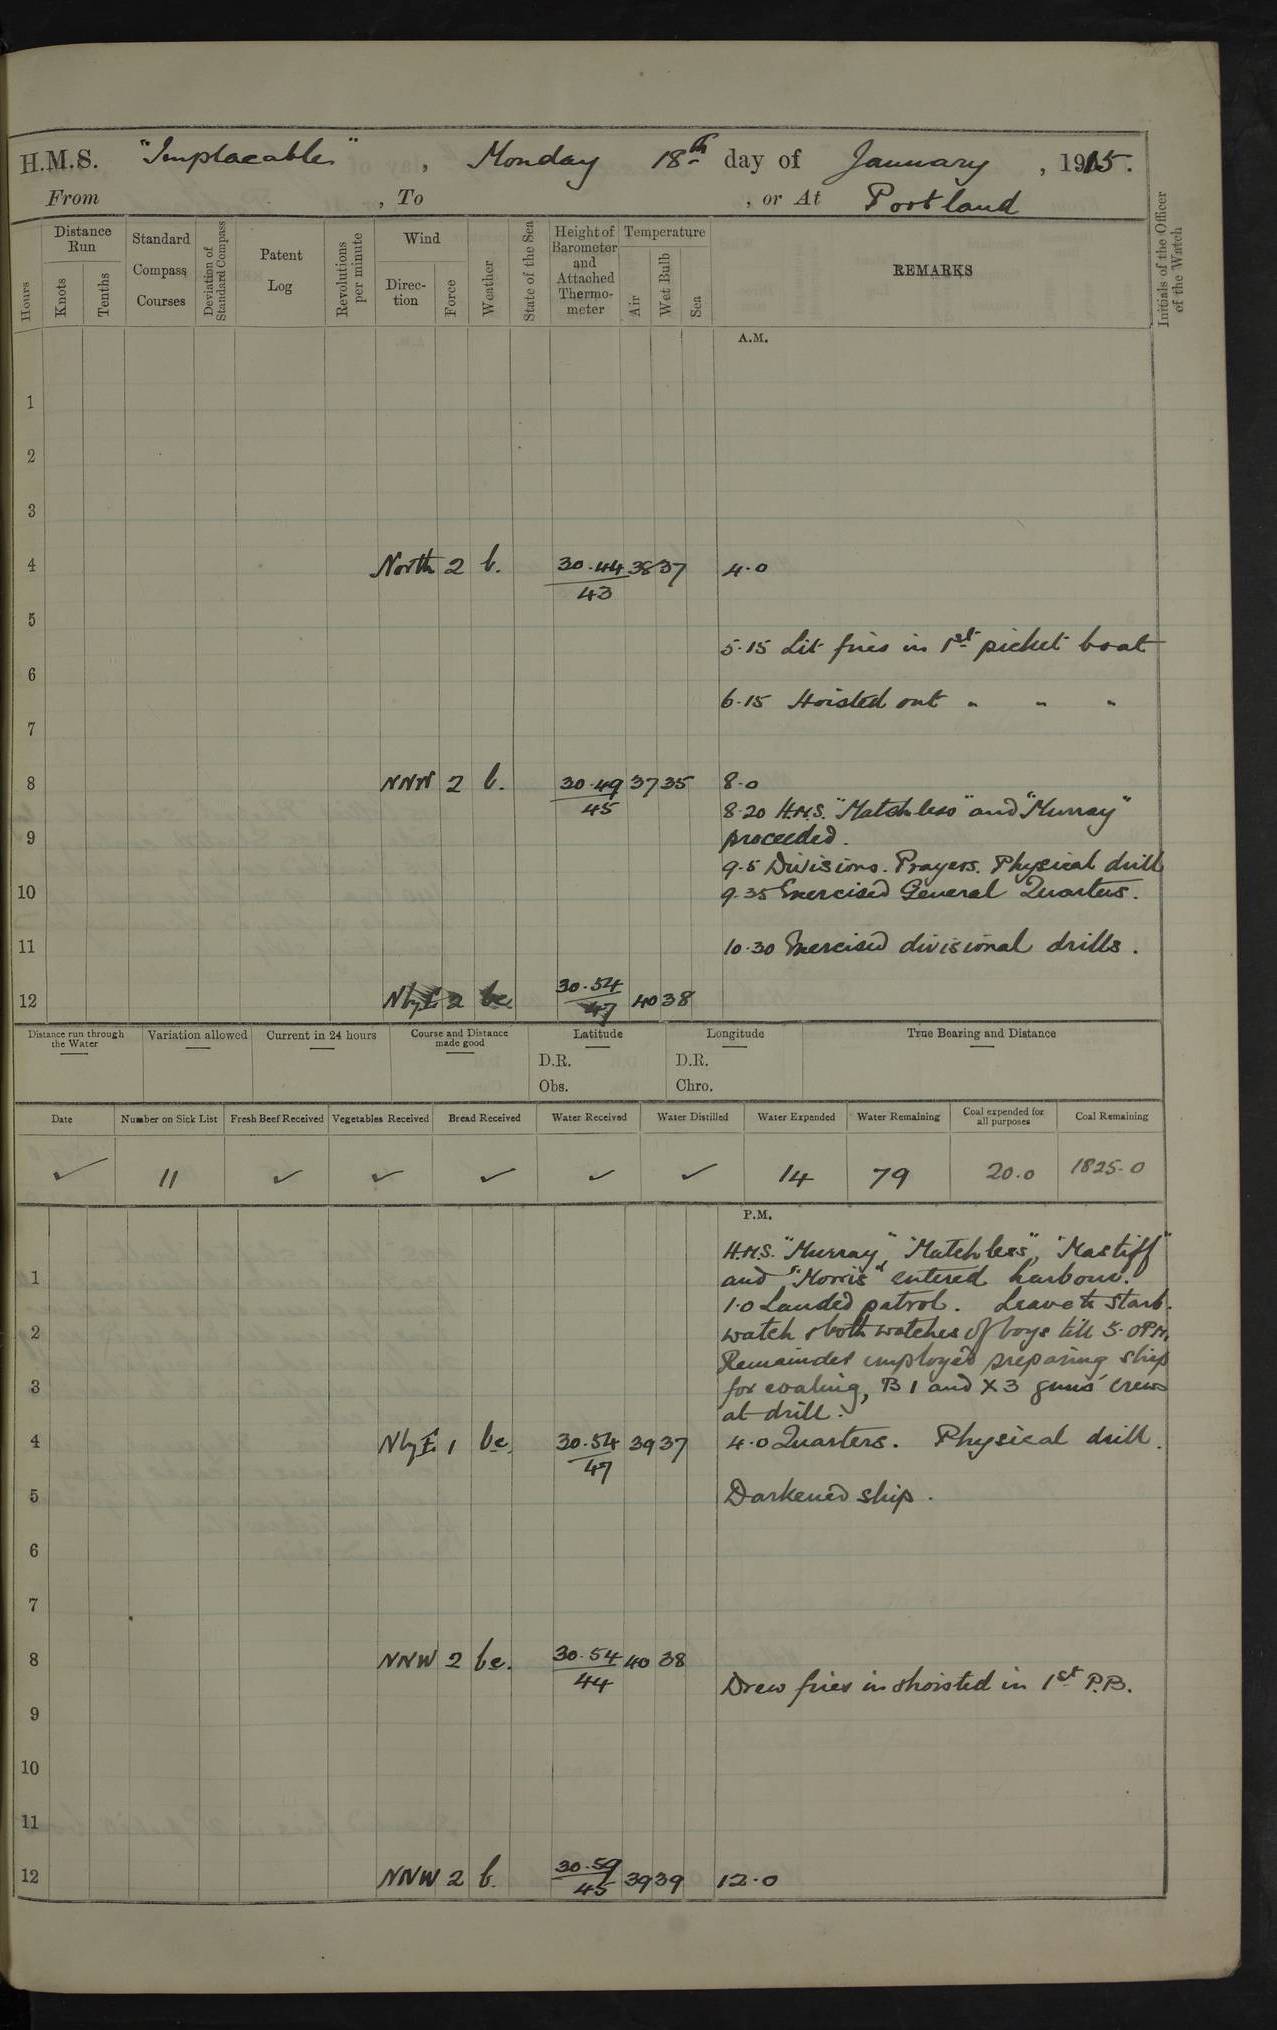 H.M.S. "Implacable", Monday 18th day of January, 1915.
From , To , or At Portland
Hours
Distance Run
Knots
Tenths
Standard Compass Courses
Deviation of Standard Compass
Patent Log
Revolutions per minute
Wind
Direction
Force
Weather
State of the Sea
Height of Barometer and Attached Thermometer
Temperature
Air
Wet Bulb
Sea
REMARKS
Initials of the Officer of the Watch
A.M.
1
2
3
4 North 2 b. 30.44 38 37 4.0
43
5
5.15 Lit fires in 1st picket boat
6
6.15 Hoisted out " " "
7
8 NNW 2 b. 30.49 37 35 8.0
45
8.20 H.M.S. "Matchless" and "Murray"
9 proceeded.
9.5 Divisions. Prayers. Physical drill
10 9.35 Exercised General Quarters.
11 10.30 Exercised divisional drills.
12 NbyE 2 bc 30.54 40 38
47
Distance run through the Water
Variation allowed
Current in 24 hours
Course and Distance made good
Latitude
Longitude
True Bearing and Distance
D.R. D.R.
Obs. Chro.
Date
Number on Sick List
Fresh Beef Received
Vegetables Received
Bread Received
Water Received
Water Distilled
Water Expended
Water Remaining
Coal expended for all purposes
Coal Remaining
✓ 11 ✓ ✓ ✓ ✓ ✓ 14 79 20.0 1825.0
P.M.
H.M.S. "Murray", "Matchless", "Mastiff"
1 and "Morris" entered harbour.
1.0 Landed patrol. Leave to Starb.
2 watch & both watches of boys till 5.0 PM.
Remainder employed preparing ship
3 for coaling, B1 and X3 guns' crews
at drill.
4 NbyE 1 bc. 30.54 39 37 4.0 Quarters. Physical drill.
47
5 Darkened ship.
6
7
8 NNW 2 bc. 30.54 40 38
44
Drew fires in & hoisted in 1st P.B.
9
10
11
12 NNW 2 b. 30.59 39 39 12.0
45